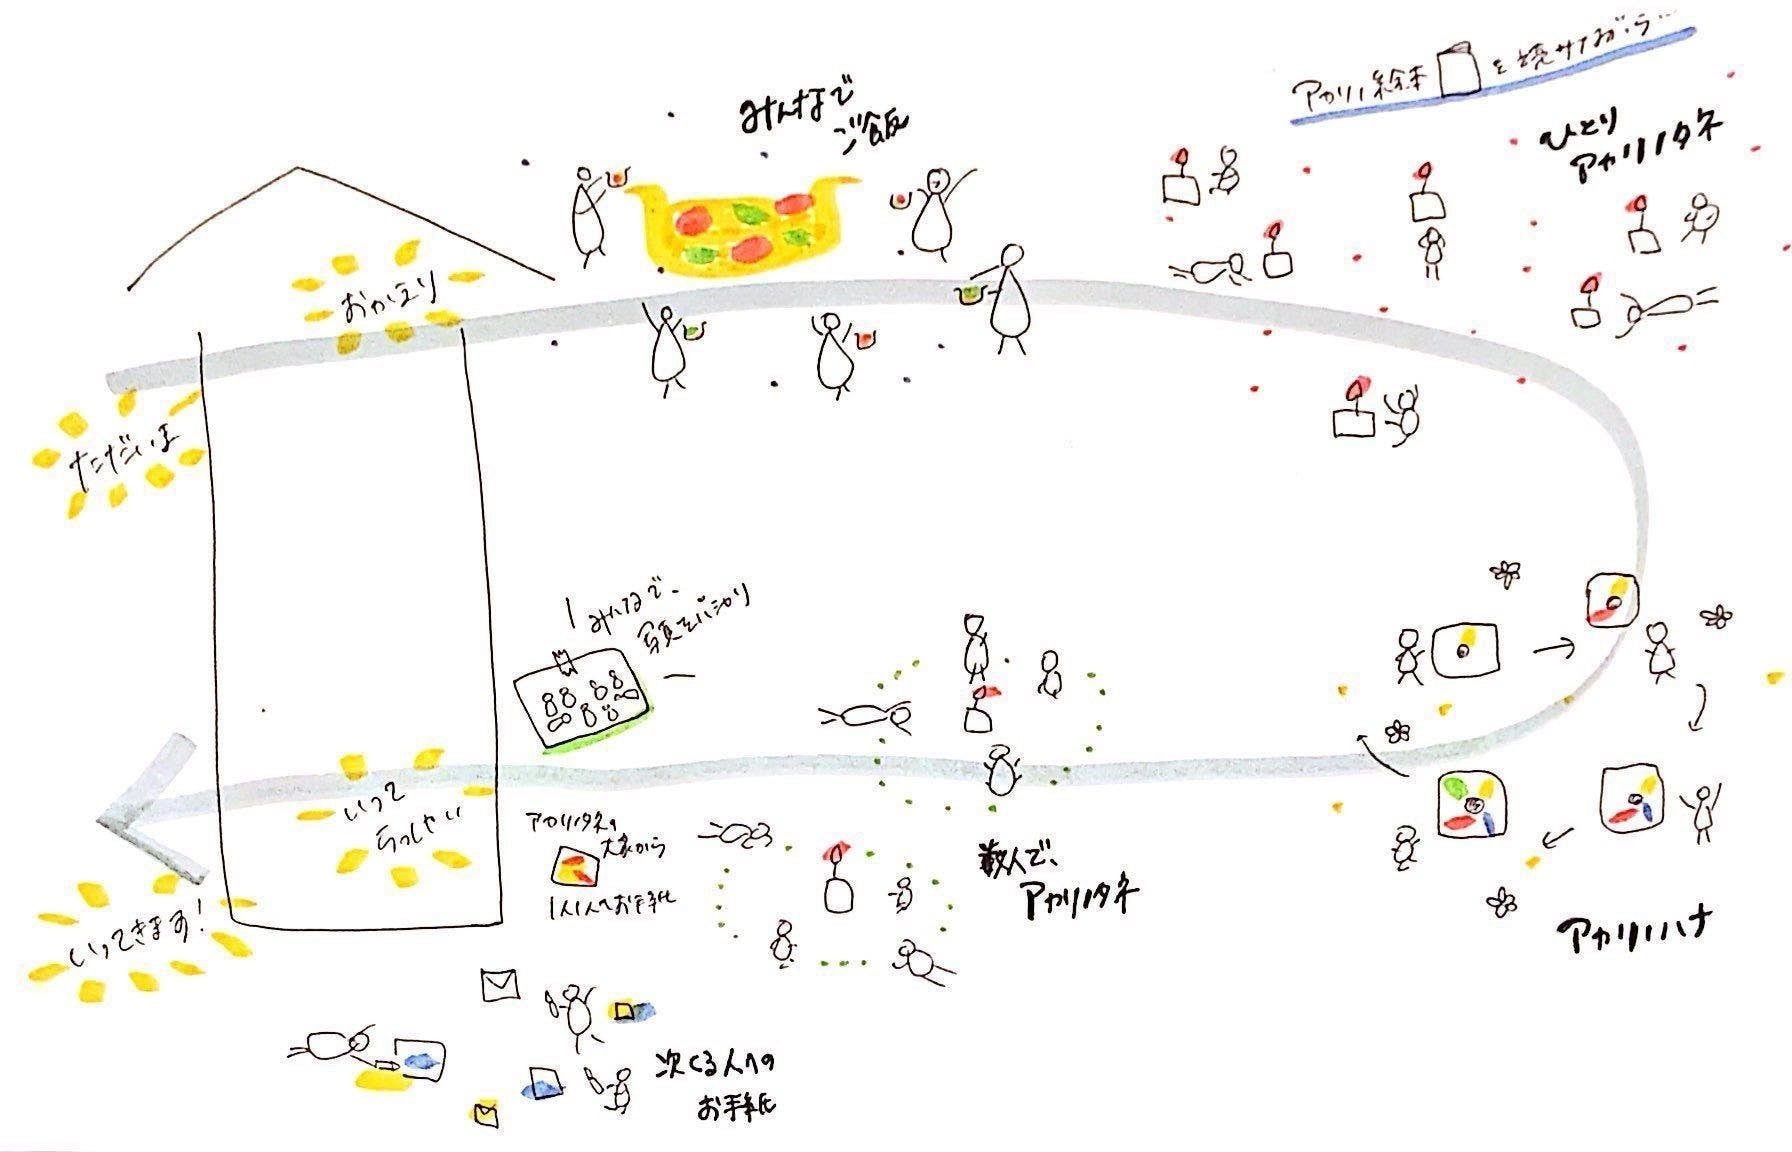 みんなで
ご飯
アカリノ絵本
を読みながら…
ひとり
アカリノタネ
おかえり
ただいま
みんなで、
写真をパシャリ
いって
らっしゃい
アカリノタネの
大家から
1人1人へお手紙
数人で、
アカリノタネ
アカリノハナ
いってきます!
次くる人への
お手紙